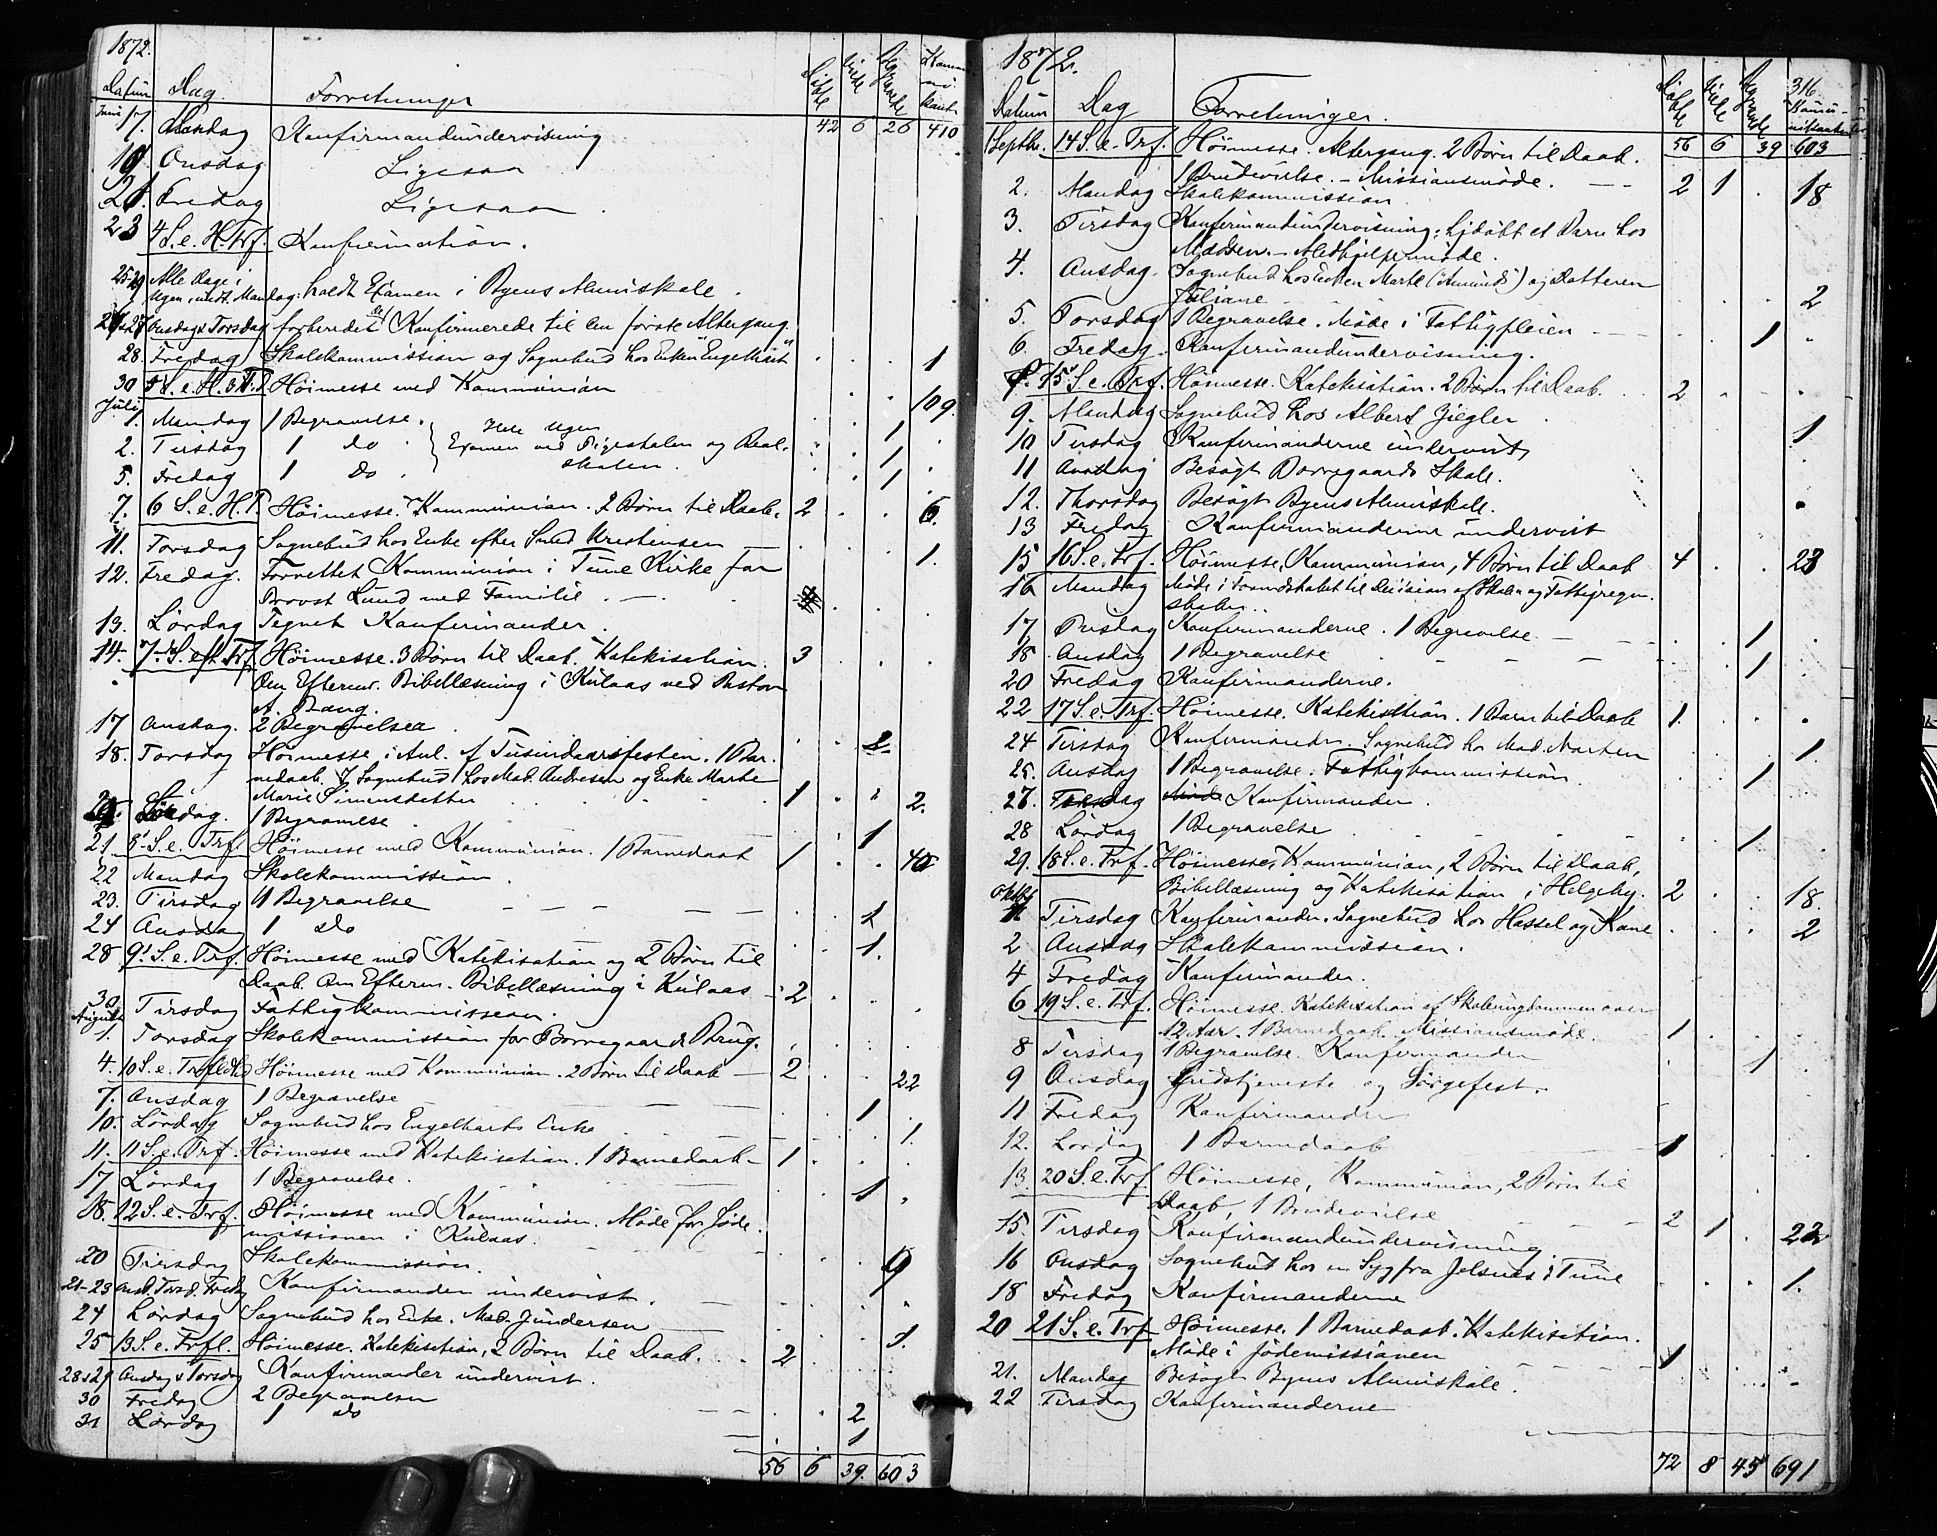 1872.
Datum Dag. Forretninger Döbte Viede Begravede Kommunikanter
Juni 17. Mandag Konfirmandundervisning 42 6 26 410
19. Onsdag Ligesaa
21. Fredag Ligesaa.
23 4 S. e. H. Trf. Konfirmation.
25-29 Alle Dage i
Ugen, undt. Mandag: holdt Examen i Byens Almuskole.
26-27 Onsdag & Torsdag forberedet de Konfirmerede til den første Altergang.
28. Fredag Skolekommission og Sognebud hos Enken Engelhart 1
30 5 S. e. H. 3 T. Höimesse med Kommunion 109.
Juli 1. Mandag 1 Begravelse. Hele Ugen 1
2. Tirsdag 1 do Examen ved Pigeskolen og Real- 1
5. Fredag 1 Do. skolen. 1
7. 6 S. e. H. T. Höimesse. Kommunion. 2 Børn til Daab. 2 6.
11. Torsdag Sognebud hos Enke efter Kristensen 1.
12. Fredag. Forrettet Kommunion i Tune Kirke for
Provst Lund med Familie.
13. Lördag Tegnet Konfirmander.
14. 7. S. eft. Trf. Höimesse. 3 Børn til Daab. Katekisation. 3
Om Efterm. Bibellæsning i Kulaas ved Pastor
A. Bang.
17 Onsdag. 2 Begravelser 2.
18. Torsdag Höimesse i Anl. af Tusindaarsfesten. 1 Bar-
nedaab. Sognebud hos Mad. Andresen og Enke Marthe
Marie Simensdatter 1 2.
20. Lördag. 1 Begravelse 1
21. 8. S. e. Trf. Höimesse med Kommunion. 1 Barnedaab 1 40
22 Mandag Skolekommission.
23. Tirsdag 1 Begravelse 1
24 Onsdag 1 Do 1.
28 9. S. e. Trf. Höimesse med Katekisation og 2 Børn til
Daab. Om Efterm. Bibellæsning i Kulaas 2
30 Tirsdag Fattigkommission.
August 1. Torsdag Skolekommission for Borregaards Brug.
4. 10 S. e. Trf. Höimesse med Kommunion. 2 Børn til Daab 2 22
7. Onsdag 1 Begravelse 1
10. Lördag Sognebud hos Engelharts Enke 1.
11. 11 S. e. Trf. Höimesse med Katekisation. 1 Barnedaab 1
17 Lördag 1 Begravelse. 1
18. 12 S. e. Trf. Höimesse med Kommunion. Møde for Jöde-
missionen i Kulaas. 9
20 Tirsdag Skolekommission.
21-23 Onsd. Torsd. Fredag Konfirmander undervist.
24 Lördag Sognebud hos Enke. Mad. Gundersen 1.
25 13 S. e. Trfl. Höimesse. Katekisation, 2 Børn til Daab. 2
28 & 29 Onsdag & Torsdag Konfirmander undervist.
30 Fredag 2 Begravelser 2
31 Lördag 1 do 1
56 6 39. 603
1872. 316
Datum Dag Forretninger. Döbte Viede Begravede Kommunikanter
1 Septbr. 14 S. e. Trf. Höimesse. Altergang. 2 Børn til Daab. 56 6 39 603
1 Brudevielse. - Missionsmöde. 2 1 18
2. Mandag Skolekommission
3. Tirsdag Konfirmandundervisning. Hjdöbt et Barn hos
Madsen. - Medhjelpermöde.
4. Onsdag. Sognebud hos Enken Marte (Amunds) og Datteren
Juliane 2
5. Torsdag 1 Begravelse. Möde i Fattigpleien 1
6. Fredag. Konfirmandundervisning.
8. 15 S. e. Trf. Höimesse. Katekisation. 2 Børn til Daab. 2
9. Mandag Sognebud hos Albert Ziegler 1
10. Tirsdag Konfirmanderne undervist
11 Onsdag Besögt Borregaards Skole.
12. Thorsdag Besögt Byens Almuskole.
13 Fredag Konfirmanderne undervist
15 16 S. e. Trf. Höimesse, Kommunion, 4 Børn til Daab 4 23
16 Mandag Möde i Formandskabet til Decision af Skole og Fattigregn-
skaber.
17 Tirsdag Konfirmanderne. 1 Begravelse 1
18 Onsdag 1 Begravelse 1
20 Fredag Konfirmanderne.
22 17 S. e. Trf. Höimesse. Katekisation. 1 Barn til Daab 1.
24 Tirsdag Konfirmander. Sognebud hos Mad. Morten 1
25. Onsdag 1 Begravelse. Fattigkommission 1
27. Fredag Konfirmander.
28 Lördag 1 Begravelse 1
29. 18 S. e. Trf. Höimesse, Kommunion, 2 Børn til Daab,
Bibellæsning og Katekisation i Helgeby. 2 18.
Oktbr. 1. Tirsdag Konfirmander. Sognebud hos Hassel og Kone 2
2 Onsdag Skolekommission.
4 Fredag Konfirmander.
6 19 S. e. Trf. Höimesse. Katekisation af Skoleungdommen over
12 Aar. 1 Barnedaab. Missionsmöde. 1
8 Tirsdag 1 Begravelse. Konfirmander 1
9 Onsdag Gudstjeneste og Sörgefest.
11 Fredag Konfirmander
12. Lördag 1 Barnedaab 1
13. 20 S. e. Trf. Höimesse, Kommunion, 2 Børn til
Daab, 1 Brudevielse 2 1 22
15. Tirsdag Konfirmandundervisning.
16 Onsdag Sognebud hos en Syg fra Jelsnes i Tune 1.
18 Fredag Konfirmanderne
20 21 S. e. Trf Höimesse. 1 Barnedaab. Katekisation.
Möde i Jödemissionen 1
21. Mandag Besögt Byens Almuskole.
22 Tirsdag Konfirmanderne
72 8 45 691